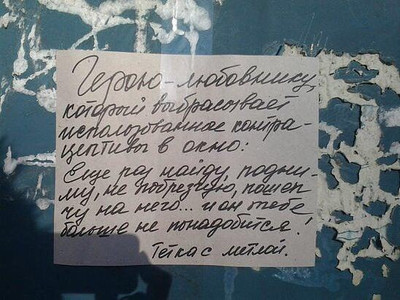 Герою-любовнику,
который выбрасывает
использованные контра-
цептивы в окно:
Еще раз найду, подни-
му, не побрезгую, пошеп-
чу на него... и он тебе
больше не понадобится!
Тетка с метлой.